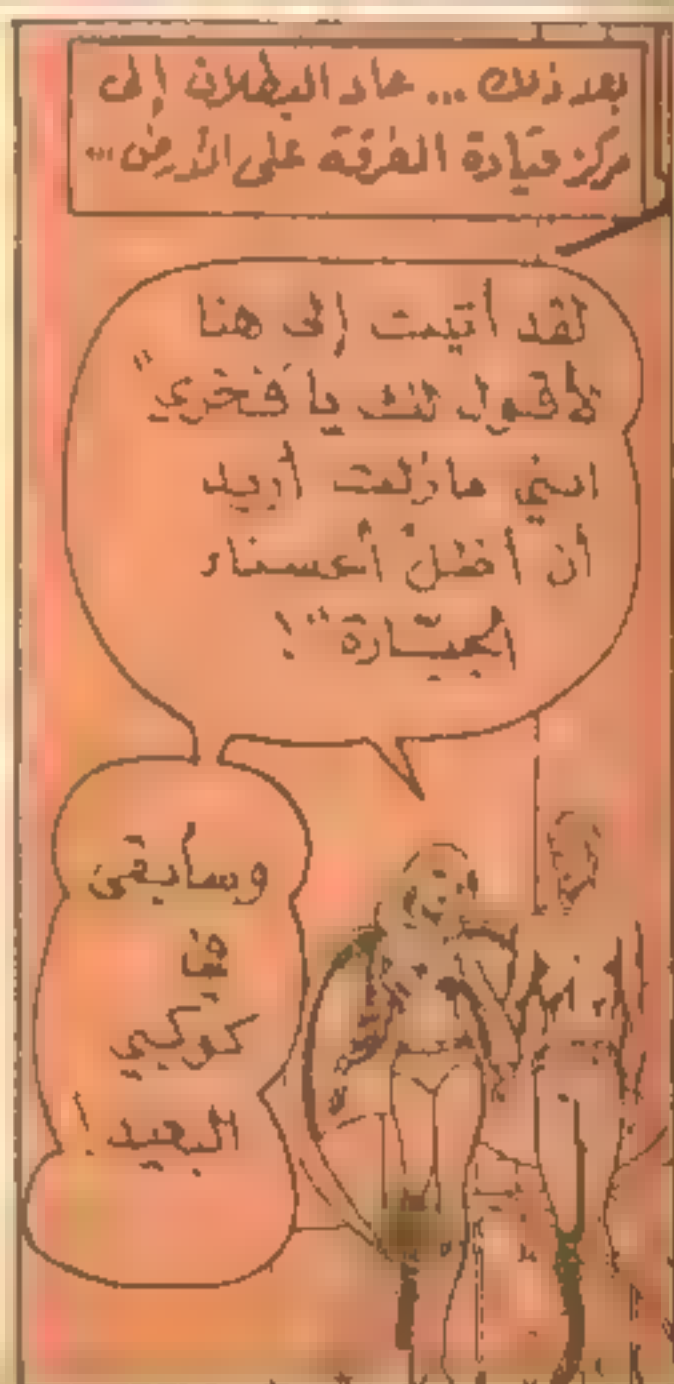 بعد ذلك ... عاد البطلان إلى
مركز قيادة الفرقة على الأرض ...
لقد أتيت إلى هنا
لأقول لك يا "فخري"
انني مازلت أريد
أن أظل "الحسناء
الجبّارة" !
وسأبقى
في
كوكبي
البعيد !